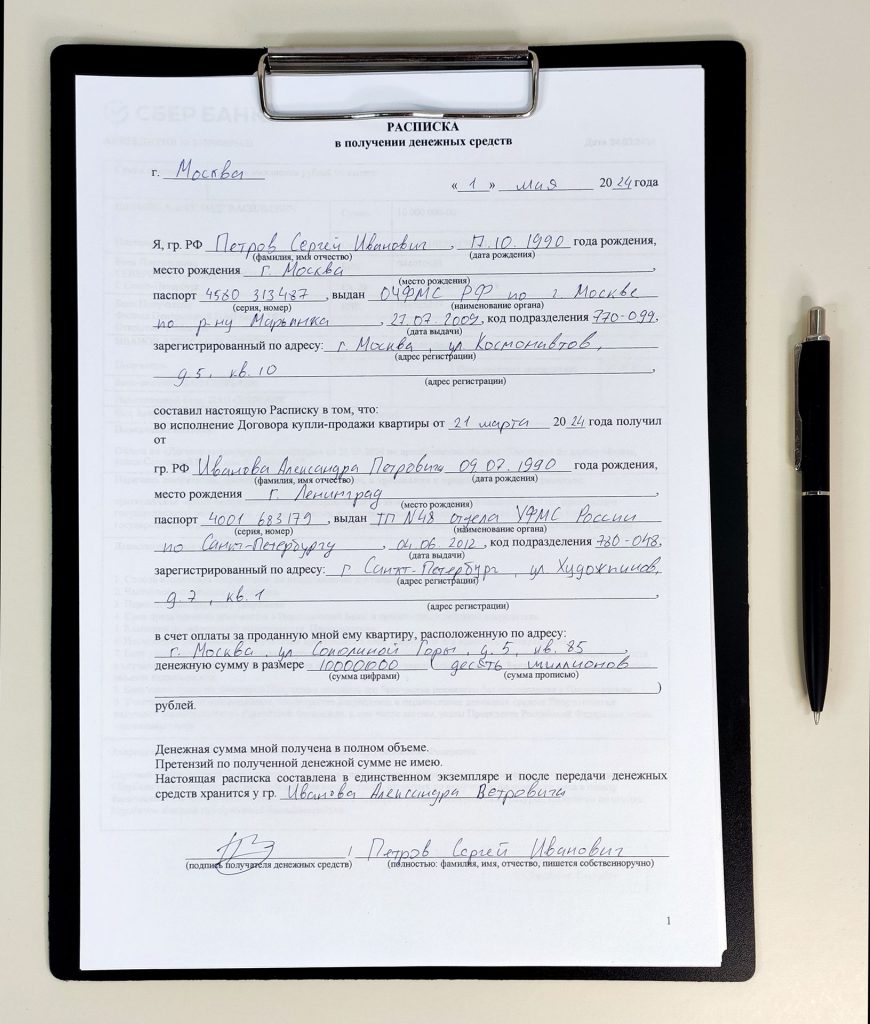 СБЕР БАНК
РАСПИСКА
в получении денежных средств
г. Москва
« 1 » мая 20 24 года
Я, гр. РФ Петров Сергей Иванович , 17.10.1990 года рождения,
(фамилия, имя отчество) (дата рождения)
место рождения г. Москва ,
(место рождения)
паспорт 4580 313487 , выдан ОУФМС РФ по г. Москве
(серия, номер) (наименование органа)
по р-ну Марьинка , 27.07.2009 , код подразделения 770-099,
(дата выдачи)
зарегистрированный по адресу: г. Москва , ул. Космонавтов,
(адрес регистрации)
д 5, кв. 10 ,
(адрес регистрации)
составил настоящую Расписку в том, что:
во исполнение Договора купли-продажи квартиры от 21 марта 20 24 года получил
от
гр. РФ Иванова Александра Петровича 09.07.1990 года рождения,
(фамилия, имя отчество) (дата рождения)
место рождения г. Ленинград ,
(место рождения)
паспорт 4001 683179 , выдан ТП N48 отдела УФМС России
(серия, номер) (наименование органа)
по Санкт-Петербургу , 04.06.2012 , код подразделения 780-048,
(дата выдачи)
зарегистрированный по адресу: г Санкт-Петербург , ул. Художников,
(адрес регистрации)
д. 7, кв. 1 ,
(адрес регистрации)
в счет оплаты за проданную мной ему квартиру, расположенную по адресу:
г. Москва, ул Соколиной Горы, д. 5, кв. 85 ,
денежную сумму в размере 10000000 ( десять миллионов
(сумма цифрами) (сумма прописью)
)
рублей.
Денежная сумма мной получена в полном объеме.
Претензий по полученной денежной сумме не имею.
Настоящая расписка составлена в единственном экземпляре и после передачи денежных
средств хранится у гр. Иванова Александра Петровича
/ Петров Сергей Иванович
(подпись получателя денежных средств) (полностью: фамилия, имя, отчество, пишется собственноручно)
1